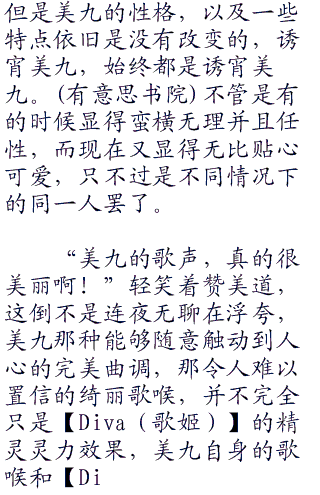 但是美九的性格，以及一些
特点依旧是没有改变的，诱
宵美九，始终都是诱宵美
九。(有意思书院)不管是有
的时候显得蛮横无理并且任
性，而现在又显得无比贴心
可爱，只不过是不同情况下
的同一人罢了。
“美九的歌声，真的很
美丽啊！”轻笑着赞美道，
这倒不是连夜无聊在浮夸，
美九那种能够随意触动到人
心的完美曲调，那令人难以
置信的绮丽歌喉，并不完全
只是【Diva（歌姬）】的精
灵灵力效果，美九自身的歌
喉和【Di